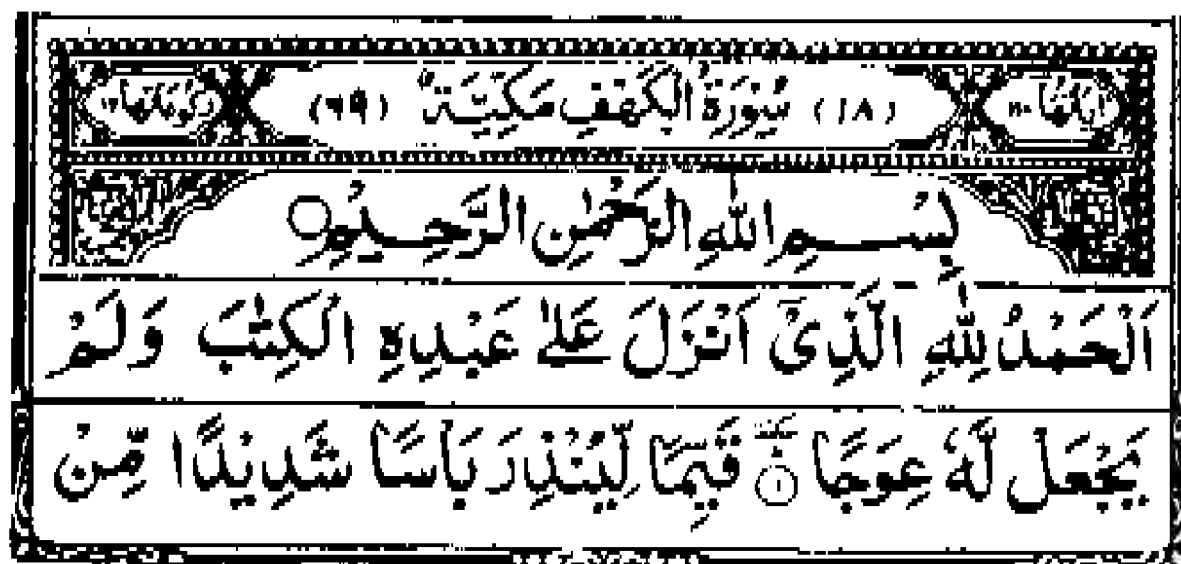 اٰيَاتُهَا ١١٠ (١٨) سُوْرَةُ الْكَهْفِ مَكِّيَّةٌ (٦٩) رُكُوْعَاتُهَا ١٢
بِسْمِ اللّٰهِ الرَّحْمٰنِ الرَّحِيْمِ
اَلْحَمْدُ لِلّٰهِ الَّذِىْٓ اَنْزَلَ عَلٰى عَبْدِهِ الْكِتٰبَ وَلَمْ
يَجْعَلْ لَّهٗ عِوَجًا ۜ ١ قَيِّمًا لِّيُنْذِرَ بَاْسًا شَدِيْدًا مِّنْ